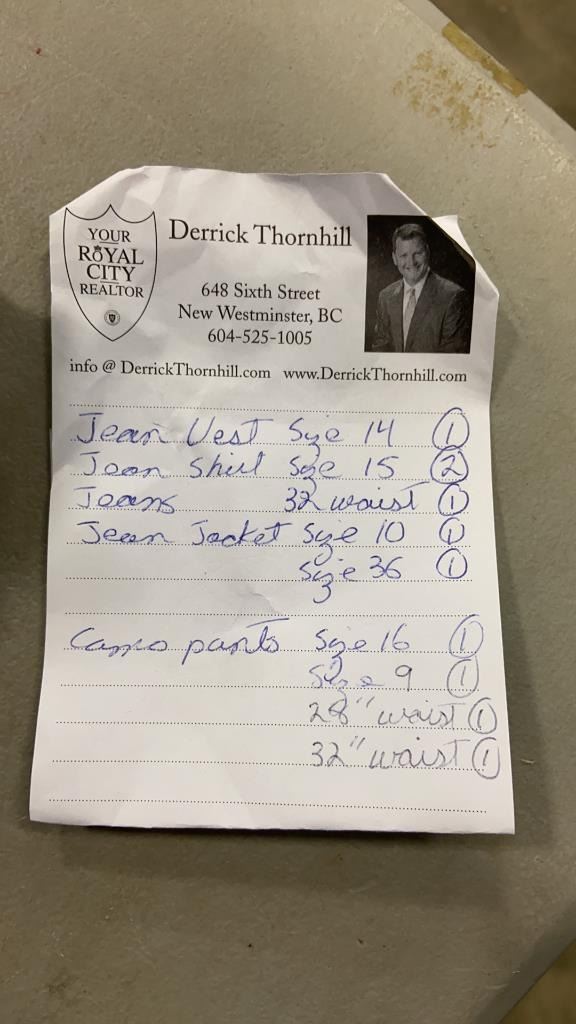 YOUR
ROYAL
CITY
REALTOR
Derrick Thornhill
648 Sixth Street
New Westminster, BC
604-525-1005
info @ DerrickThornhill.com www.DerrickThornhill.com
Jean Vest Size 14 1
Jean Shirt Size 15 2
Jeans 32 waist 1
Jean Jacket Size 10 1
Size 36 1
Camo pants Size 16 1
Size 9 1
28" waist 1
32" waist 1